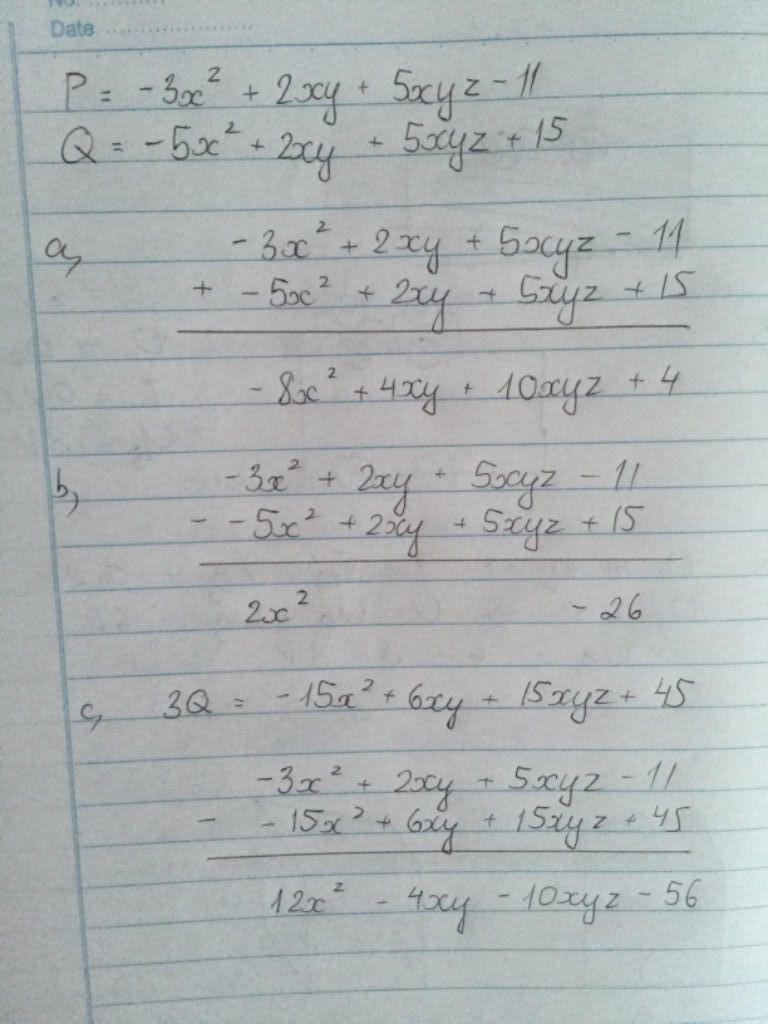 No. ..............
Date ..........................
P = -3x² + 2xy + 5xyz - 11
Q = -5x² + 2xy + 5xyz + 15
a, -3x² + 2xy + 5xyz - 11
+ -5x² + 2xy + 5xyz + 15
-8x² + 4xy + 10xyz + 4
b, -3x² + 2xy + 5xyz - 11
- -5x² + 2xy + 5xyz + 15
2x² - 26
c, 3Q = -15x² + 6xy + 15xyz + 45
-3x² + 2xy + 5xyz - 11
- -15x² + 6xy + 15xyz + 45
12x² - 4xy - 10xyz - 56